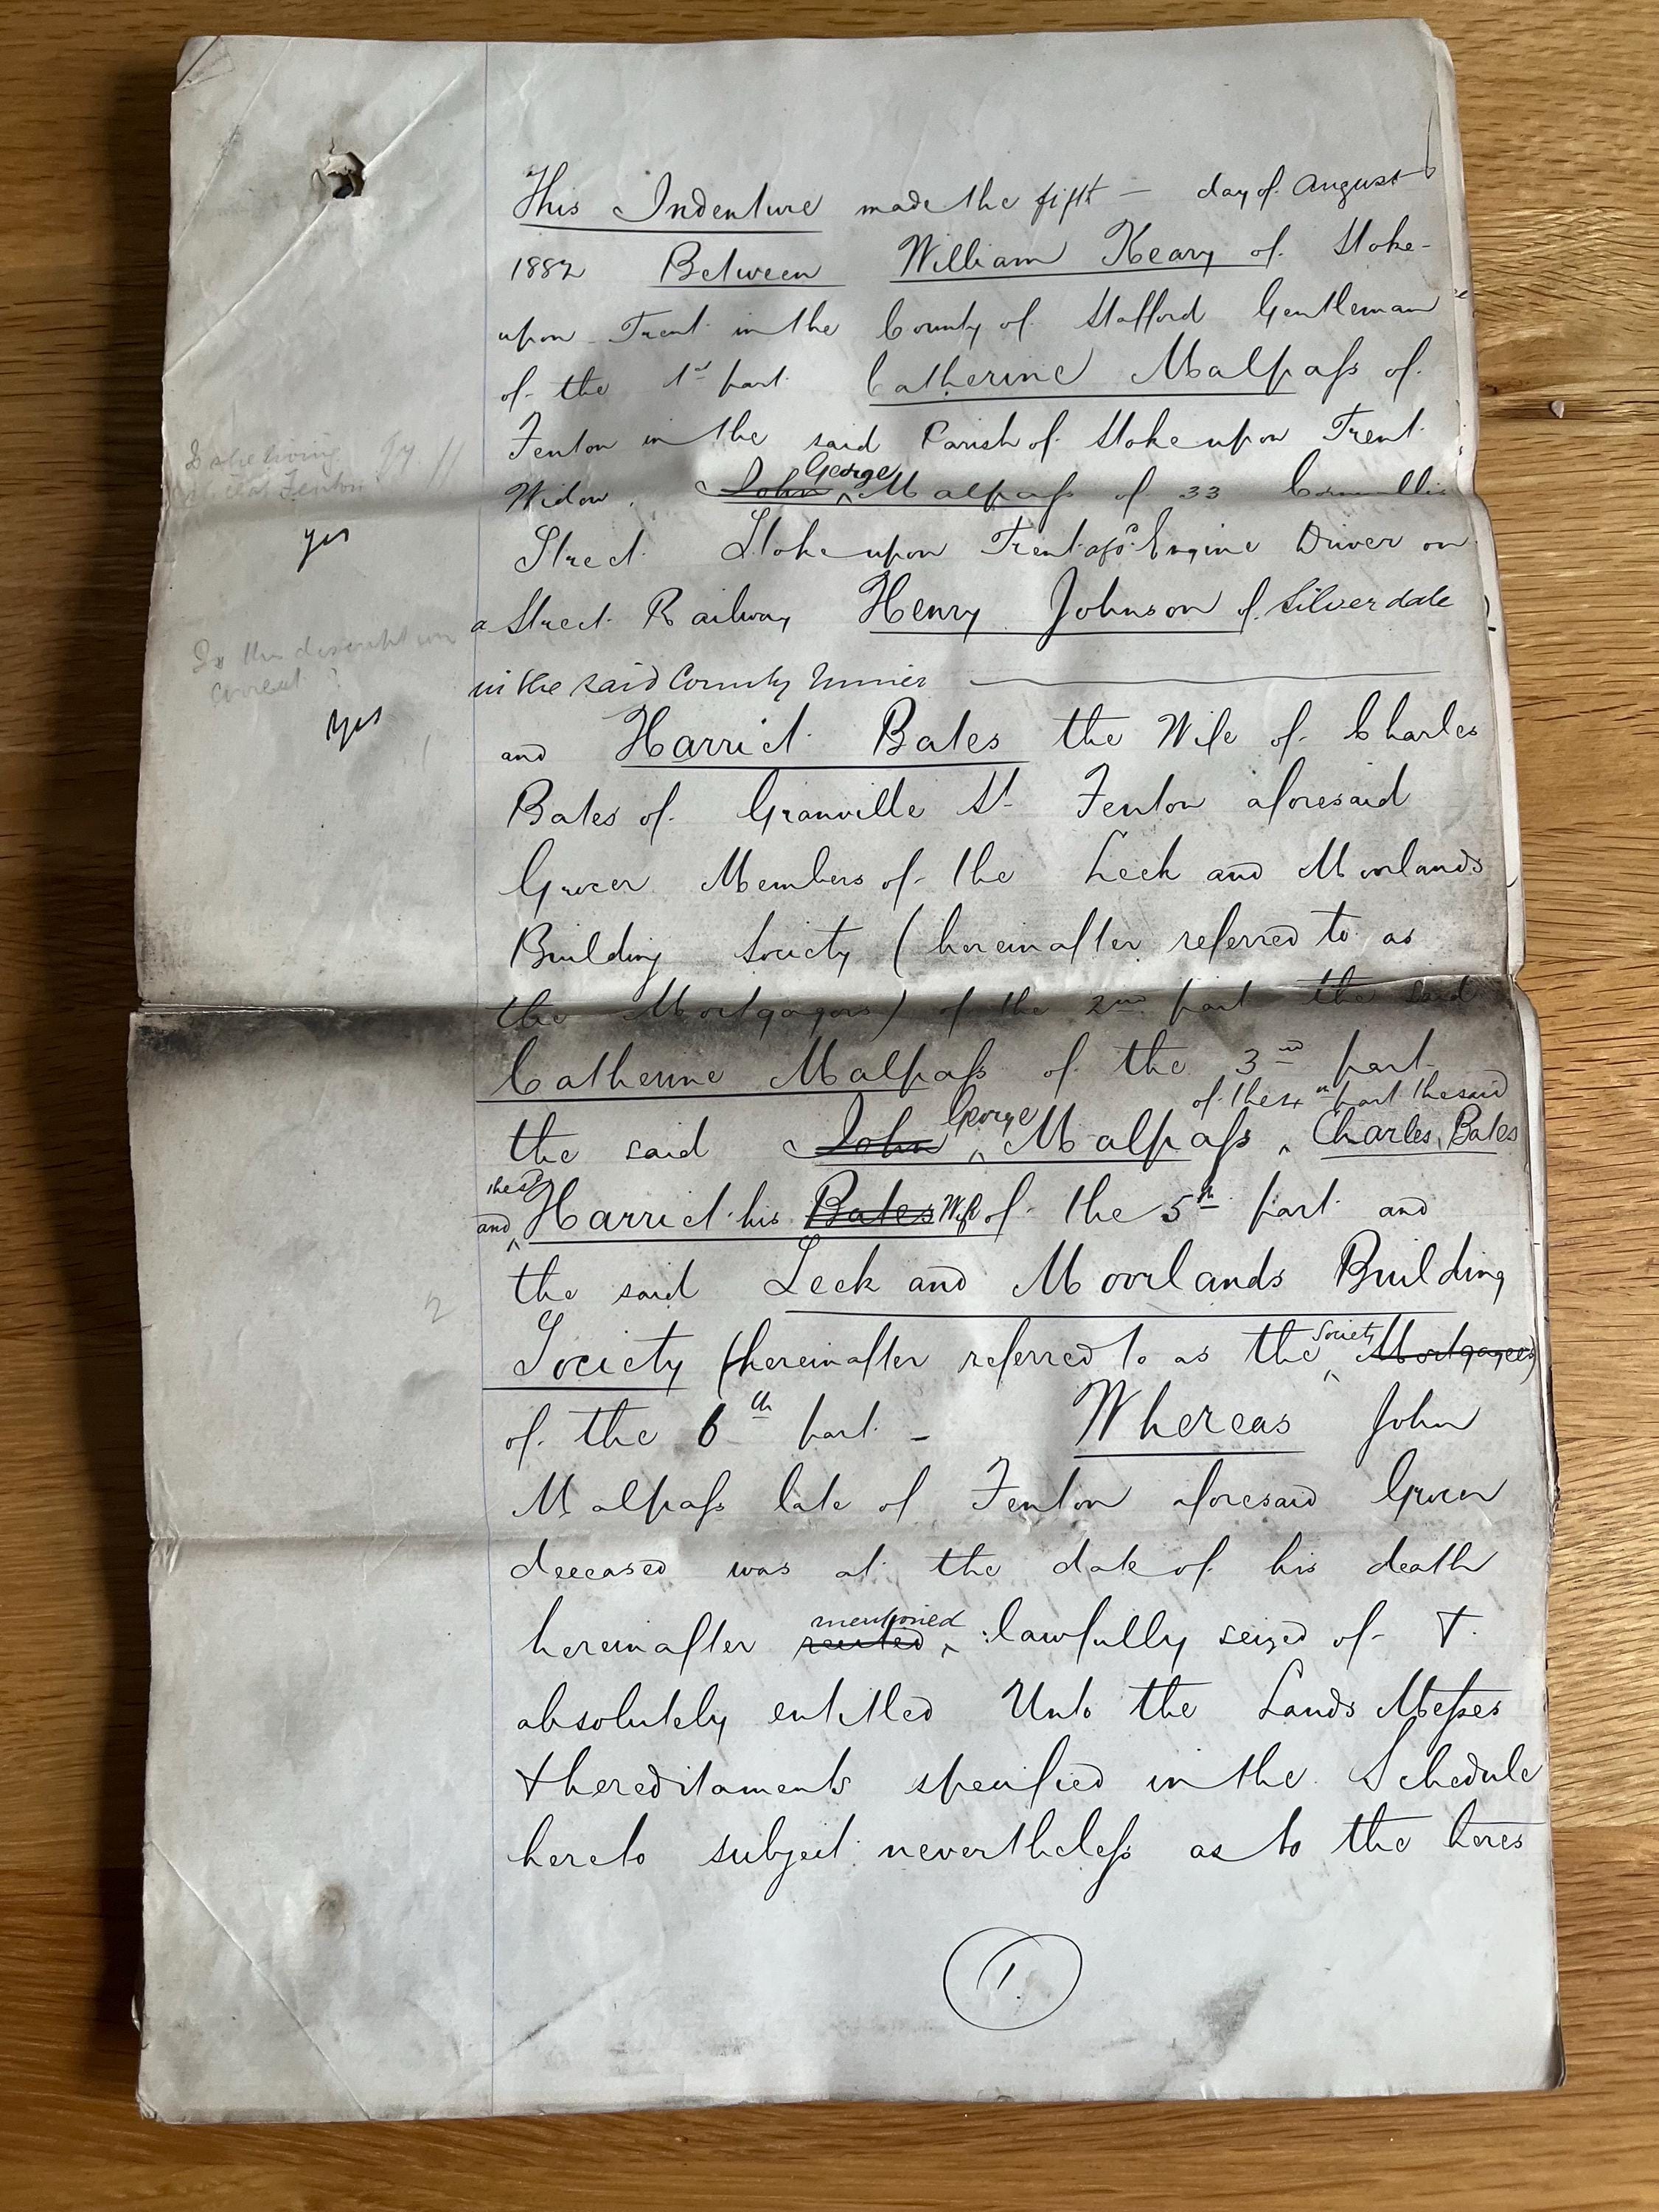 This Indenture made the fifth — day of August
1882 Between William Keary of Stoke-
upon Trent in the County of Stafford Gentleman
of the 1st part Catherine Malpaſs of
Fenton in the said Parish of Stoke upon Trent
Is she living
at Fenton
yes
Widow, John ^George Malpaſs of 33 Cornwallis
Street Stoke upon Trent afsd Engine Driver on
a Street Railway Henry Johnson of Silverdale
Is this description
correct?
Yes
in the said County Miner
and Harriet Bates the Wife of Charles
Bates of Granville St Fenton aforesaid
Grocer Members of the Leek and Moorlands
Building Society (hereinafter referred to as
the Mortgagors) of the 2nd part the said
Catherine Malpaſs of the 3rd part
the said John ^George Malpaſs ^of the 4th part the said Charles Bates
and ^the sd Harriet his Bates Wife of the 5th part and
the said Leek and Moorlands Building
2
Society (hereinafter referred to as the ^Society Mortgagees)
of the 6th part - Whereas John
Malpaſs late of Fenton aforesaid Grocer
deceased was at the date of his death
hereinafter recited ^mentioned lawfully seized of &
absolutely entitled Unto the Lands Meſses
& hereditaments specified in the Schedule
hereto subject nevertheleſs as to the heres
1.